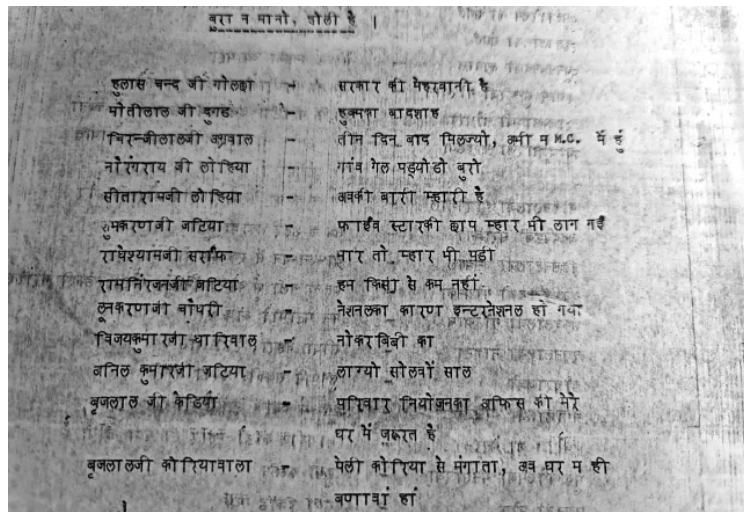 बुरा न मानो, होली है |
हुलास चन्द जी गोलछा - सरकार की मेहरवानी है
मोतीलाल जी दुगड - हुक्मका बादशाह
चिरन्जीलालजी अग्रवाल - तीन दिन बाद मिलज्यो, अभी म M.C. में हुं
नोरंगराय जी लोहिया - गांव गेल पड्योडो बुरो
सीतारामजी लोहिया - अबकी बारी म्हारी है
रुमकरणजी जटिया - फाईव स्टारकी छाप म्हार भी लाग गई
राधेश्यामजी सर्राफ - मार तो म्हार भी पड़ी
रामनिरंजनजी जटिया - हम किसी से कम नहीं
लूनकरणजी चौधरी - नेशनलका कारण इन्टरनेशनल हो गया
विजयकुमारजी धारिवाल - नोकर बिबी का
अनिल कुमारजी जटिया - लाग्यो सोलवों साल
बृजलाल जी केडिया - परिवार नियोजनका अफिस की मेरे
घर में जरूरत है
बृजलालजी कोरियावाला - पेली कोरिया से मंगाता, अब घर म ही
बणावां हां